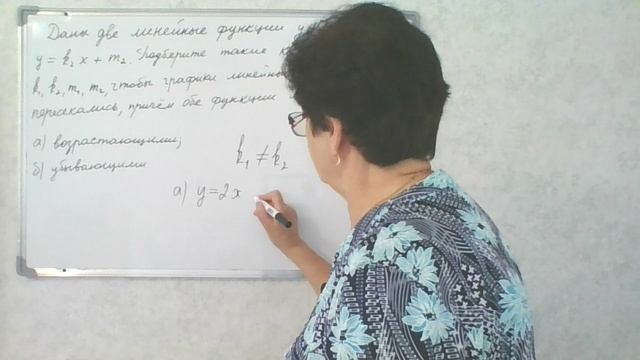 Даны две линейные функции y
y = k₂x + m₂. Подберите такие
k₁, k₂, m₁, m₂, чтобы графики линейны
пересекались, причём обе функции
а) возрастающими;
б) убывающими
k₁ ≠ k₂
а) y=2x